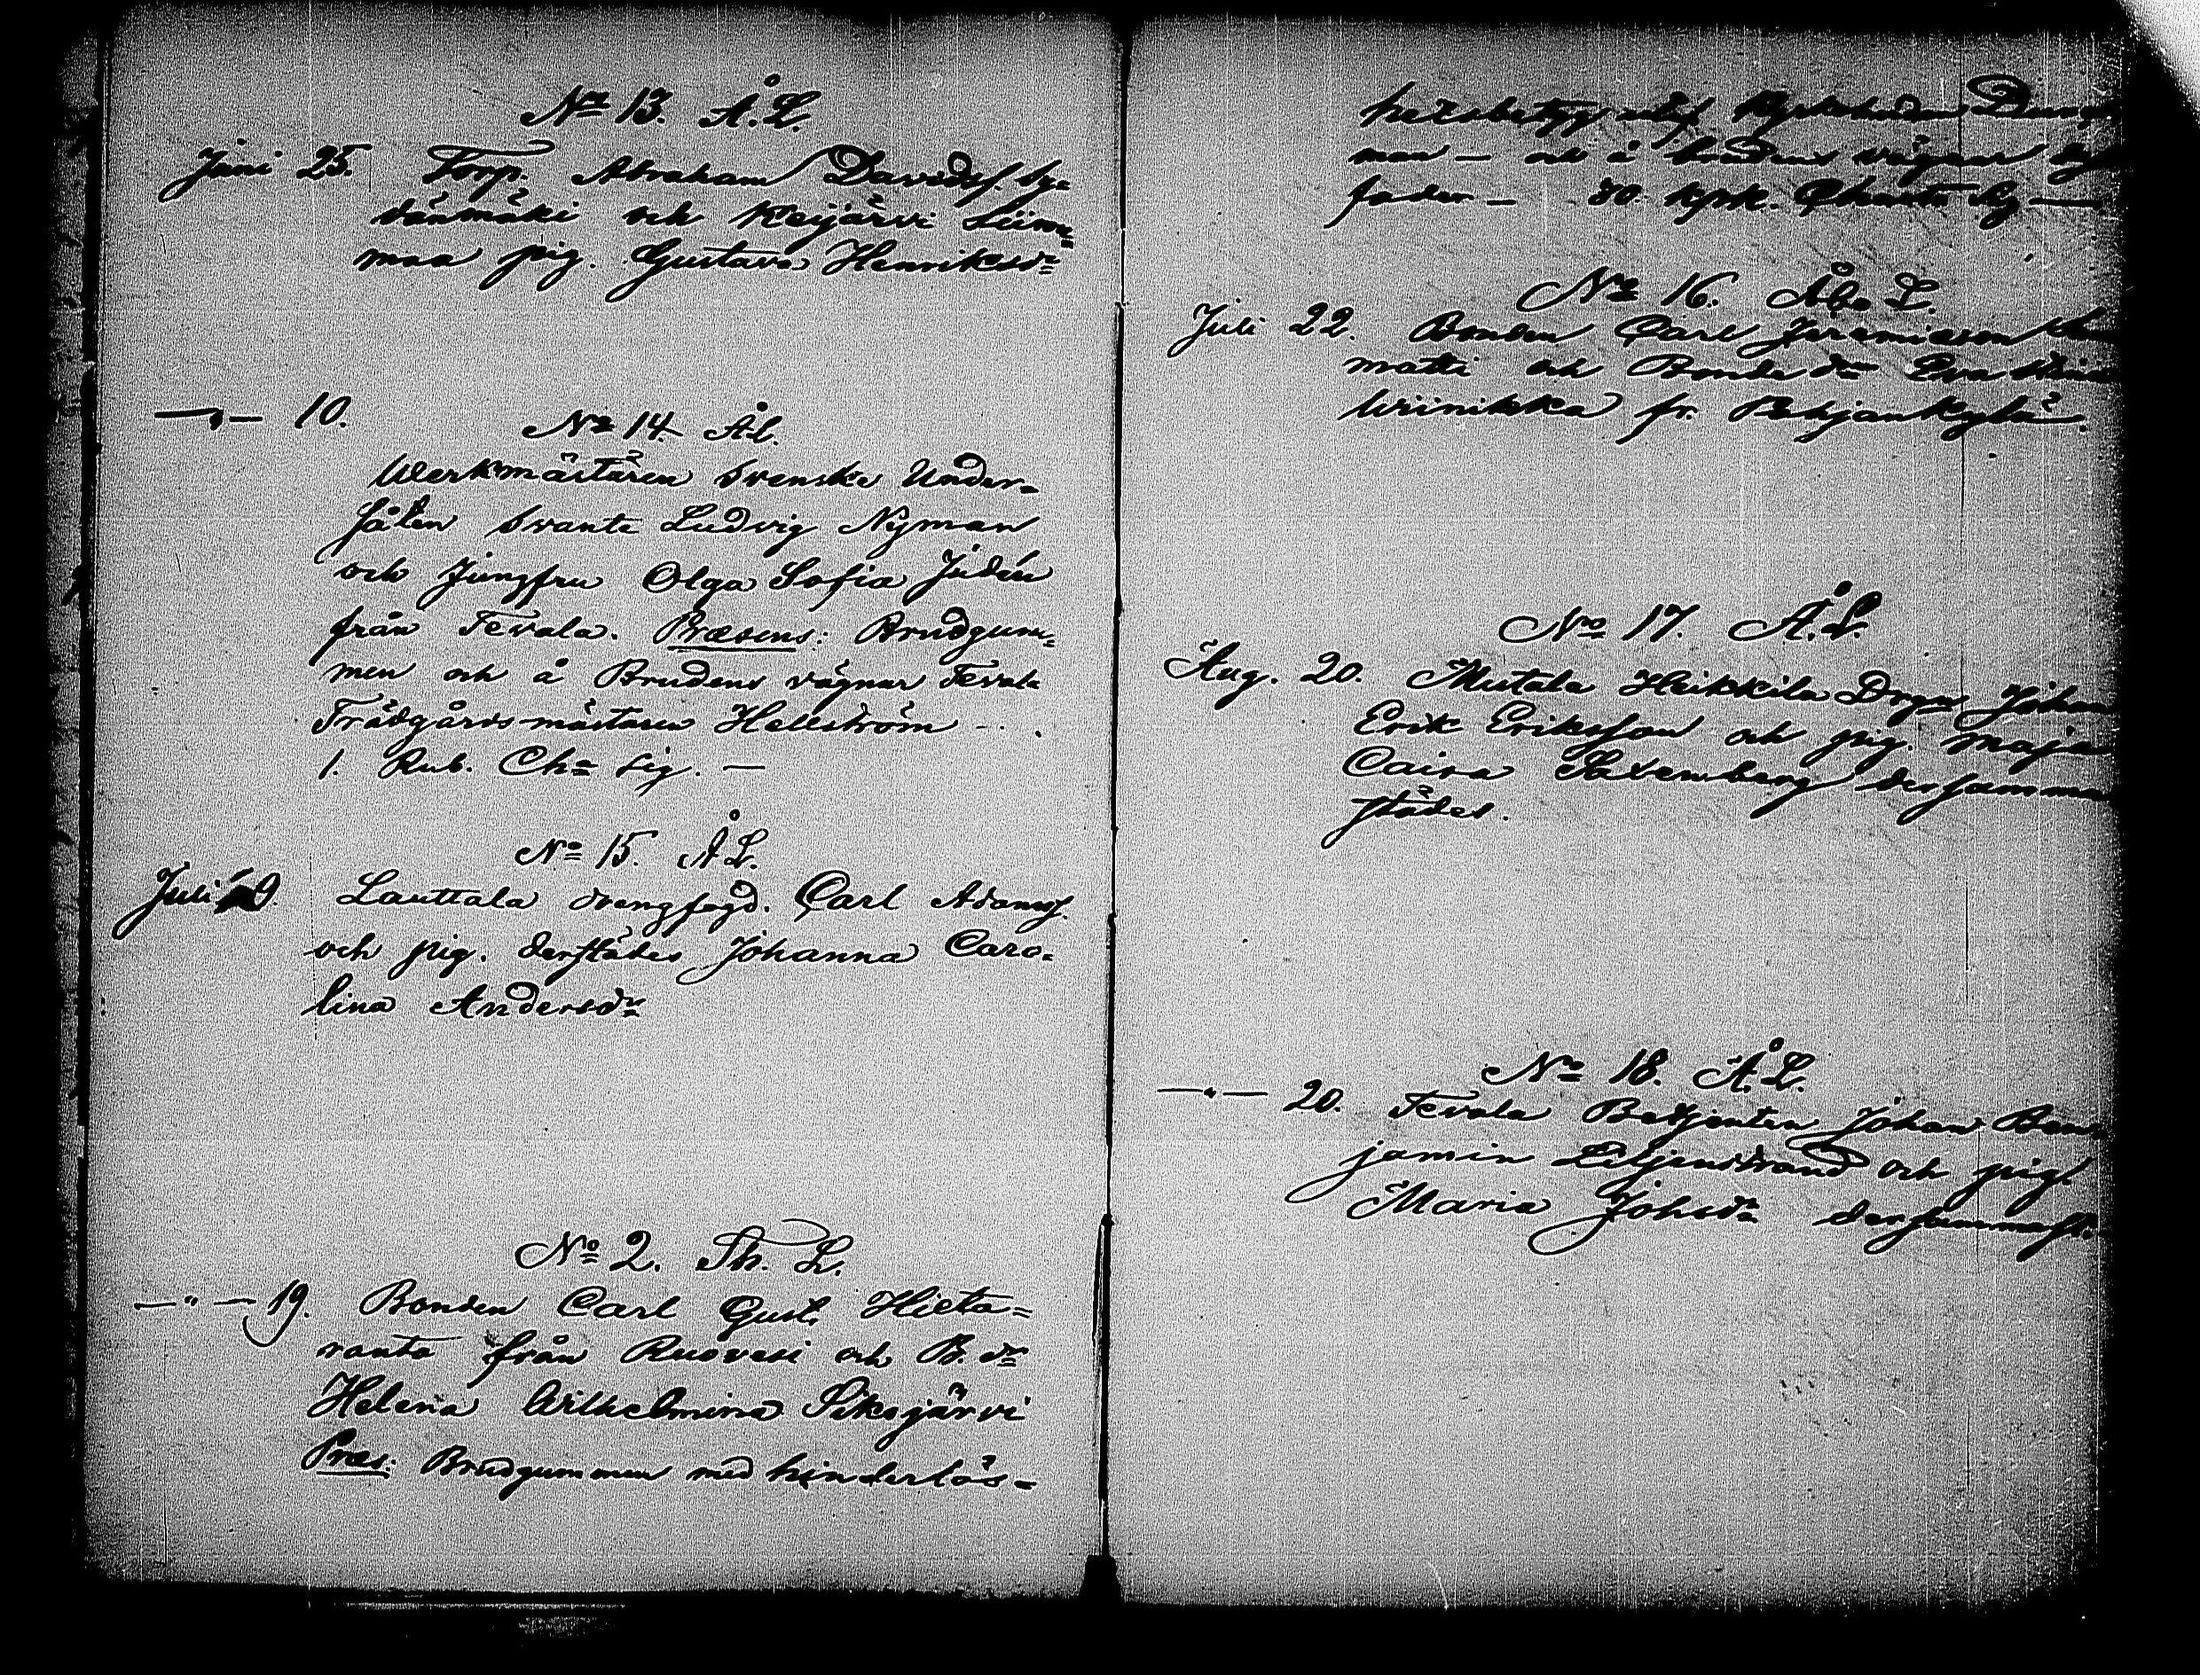 No 13. Å. L.
Juni 25. Torp. Abraham Davidss. Sy=
vänmäki och Keijärvi Liim=
maa pig. Gustava Henriksdr
—„— 10. No 14. ÅL.
Werkmästaren Svenske Under=
såten Svante Ludvig Nyman
och Jungfru Olga Sofia Jidén
från Tevala. Præsens: Brudgum=
men och å Brudens vägnar Tevala
Trädgårdsmästaren Hellström
1. Rub. Cha sig. —
No 15. ÅL.
Juli 9. Lauttala drengfogd. Carl Adamss.
och pig. derstädes Johanna Caro=
lina Andersdr
No 2. Th. L.
—„— 19. Bonden Carl Gust. Hieta=
ranta från Ruovesi och B. dr
Helena Wilhelmina Siksjärvi
Præs: Brudgummen med hinderlös=
hetsbetyg
man — och å brudens vägnar
fader — 80 kpk. Charta Sig —
No 16. Åbo L.
Juli 22. Bonden Carl Jeremiasson
matti och Bonde dr Eva
Wiinikka fr. Pohjankylä.
No 17. Å.L.
Aug. 20. Mutala Heikkila Drgn Johan
Erik Eriksson och pig. Maja
Caisa Saxenberg dersamma
städes.
No 18. Å.L.
—„— 20. Tevala Betjenten Johan Ben
jamin Liljenstrand och pig.
Maria Johsdr dersammast.